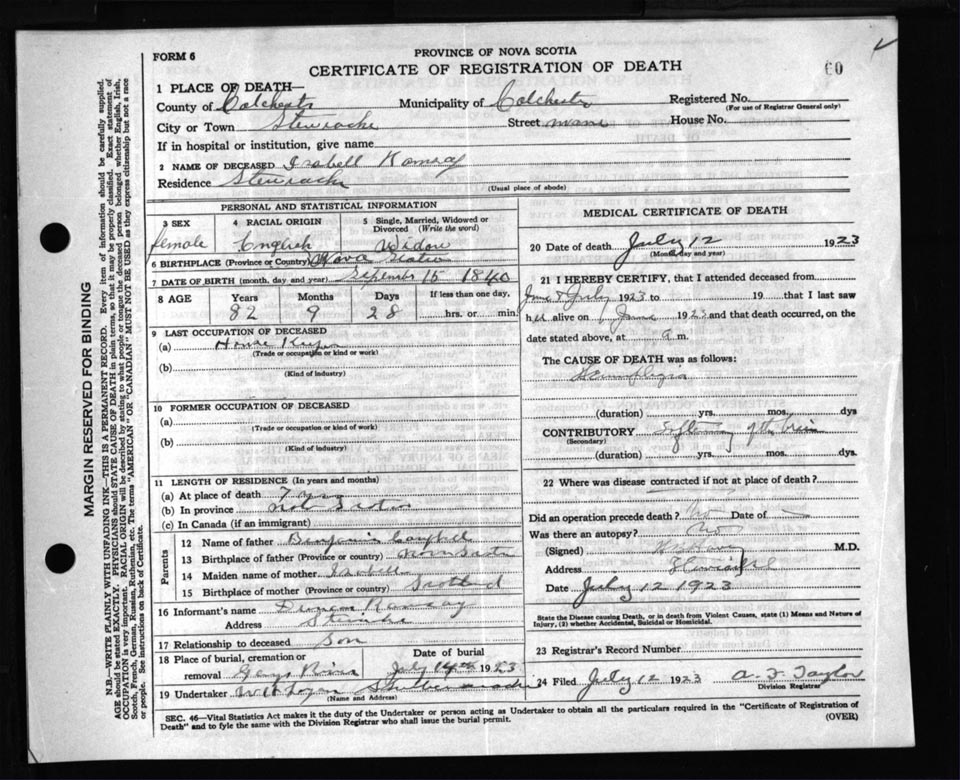 FORM 6
PROVINCE OF NOVA SCOTIA
CERTIFICATE OF REGISTRATION OF DEATH
60
1 PLACE OF DEATH—
County of Colchester Municipality of Colchester Registered No.
(For use of Registrar General only)
City or Town Stewiacke Street Main House No.
If in hospital or institution, give name
2 NAME OF DECEASED Isabell Ramsay
Residence Stewiacke
(Usual place of abode)
PERSONAL AND STATISTICAL INFORMATION
3 SEX 4 RACIAL ORIGIN 5 Single, Married, Widowed or Divorced (Write the word)
female English Widow
6 BIRTHPLACE (Province or Country) Nova Scotia
7 DATE OF BIRTH (month, day and year) September 15 1840
8 AGE Years Months Days If less than one day,
82 9 28 hrs. or min.
9 LAST OCCUPATION OF DECEASED
(a) House Keeper
(Trade or occupation or kind or work)
(b)
(Kind of industry)
10 FORMER OCCUPATION OF DECEASED
(a)
(Trade or occupation or kind of work)
(b)
(Kind of industry)
11 LENGTH OF RESIDENCE (In years and months)
(a) At place of death 7 yrs
(b) In province
(c) In Canada (if an immigrant)
Parents
12 Name of father Benjamin Campbell
13 Birthplace of father (Province or country) Nova Scotia
14 Maiden name of mother Isabell
15 Birthplace of mother (Province or country) Scotland
16 Informant's name Duncan Ramsay
Address Stewiacke
17 Relationship to deceased Son
18 Place of burial, cremation or removal Gays River
Date of burial July 14th 1923
19 Undertaker
(Name and Address)
MEDICAL CERTIFICATE OF DEATH
20 Date of death July 12 1923
(Month, day and year)
21 I HEREBY CERTIFY, that I attended deceased from
June & July 1923 to 19 that I last saw
her alive on June 1923 and that death occurred, on the
date stated above, at a m.
The CAUSE OF DEATH was as follows:
Hemiplegia
(duration) yrs. mos. dys
CONTRIBUTORY Softening of the brain
(Secondary)
(duration) yrs. mos. dys.
22 Where was disease contracted if not at place of death?
Did an operation precede death? No Date of —
Was there an autopsy? No
(Signed) M.D.
Address Stewiacke
Date July 12 1923
State the Disease causing Death, or in death from Violent Causes, state (1) Means and Nature of Injury, (2) whether Accidental, Suicidal or Homicidal.
23 Registrar's Record Number
24 Filed July 12 1923 A. F. Taylor
Division Registrar
SEC. 46—Vital Statistics Act makes it the duty of the Undertaker or person acting as Undertaker to obtain all the particulars required in the "Certificate of Registration of
Death" and to fyle the same with the Division Registrar who shall issue the burial permit.
(OVER)
MARGIN RESERVED FOR BINDING
N.B.—WRITE PLAINLY WITH UNFADING INK—THIS IS A PERMANENT RECORD. Every item of information should be carefully supplied.
AGE should be stated EXACTLY. PHYSICIANS should STATE CAUSE OF DEATH in plain terms, so that it may be properly classified. Exact statement of
OCCUPATION is very important. RACIAL ORIGIN will be described by stating to what people or tongue the deceased person belonged whether English, Irish,
Scotch, French, German, Russian, Ruthenian, etc. The terms "AMERICAN" OR "CANADIAN" MUST NOT BE USED as they express citizenship but not a race
or people. See instructions on back of Certificate.